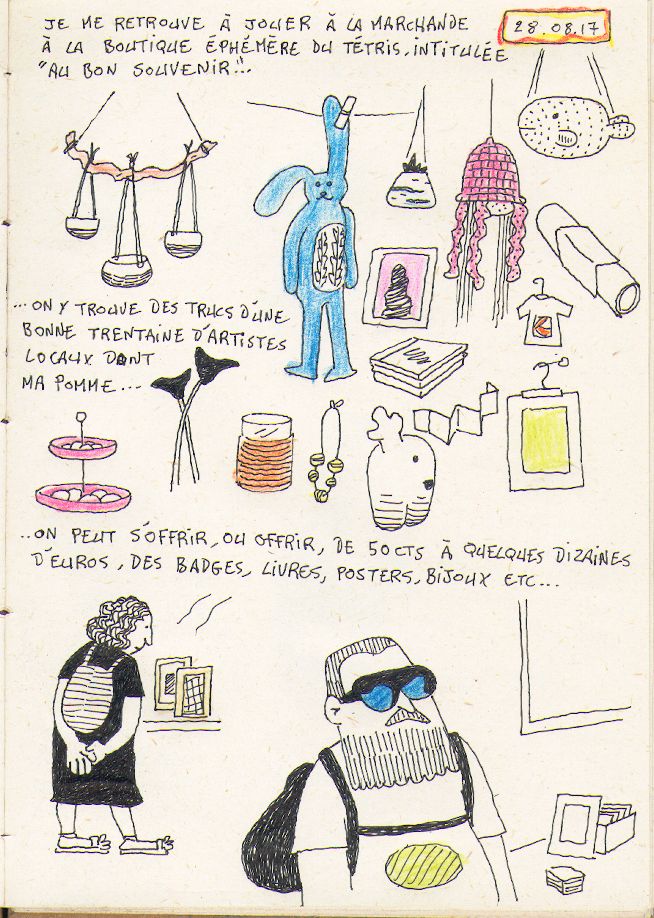 28.08.17
JE ME RETROUVE À JOUER À LA MARCHANDE
À LA BOUTIQUE ÉPHÉMÈRE DU TÉTRIS, INTITULÉE
"AU BON SOUVENIR"...
...ON Y TROUVE DES TRUCS D'UNE
BONNE TRENTAINE D'ARTISTES
LOCAUX DONT
MA POMME...
...ON PEUT S'OFFRIR, OU OFFRIR, DE 50CTS À QUELQUES DIZAINES
D'EUROS, DES BADGES, LIVRES, POSTERS, BIJOUX ETC...